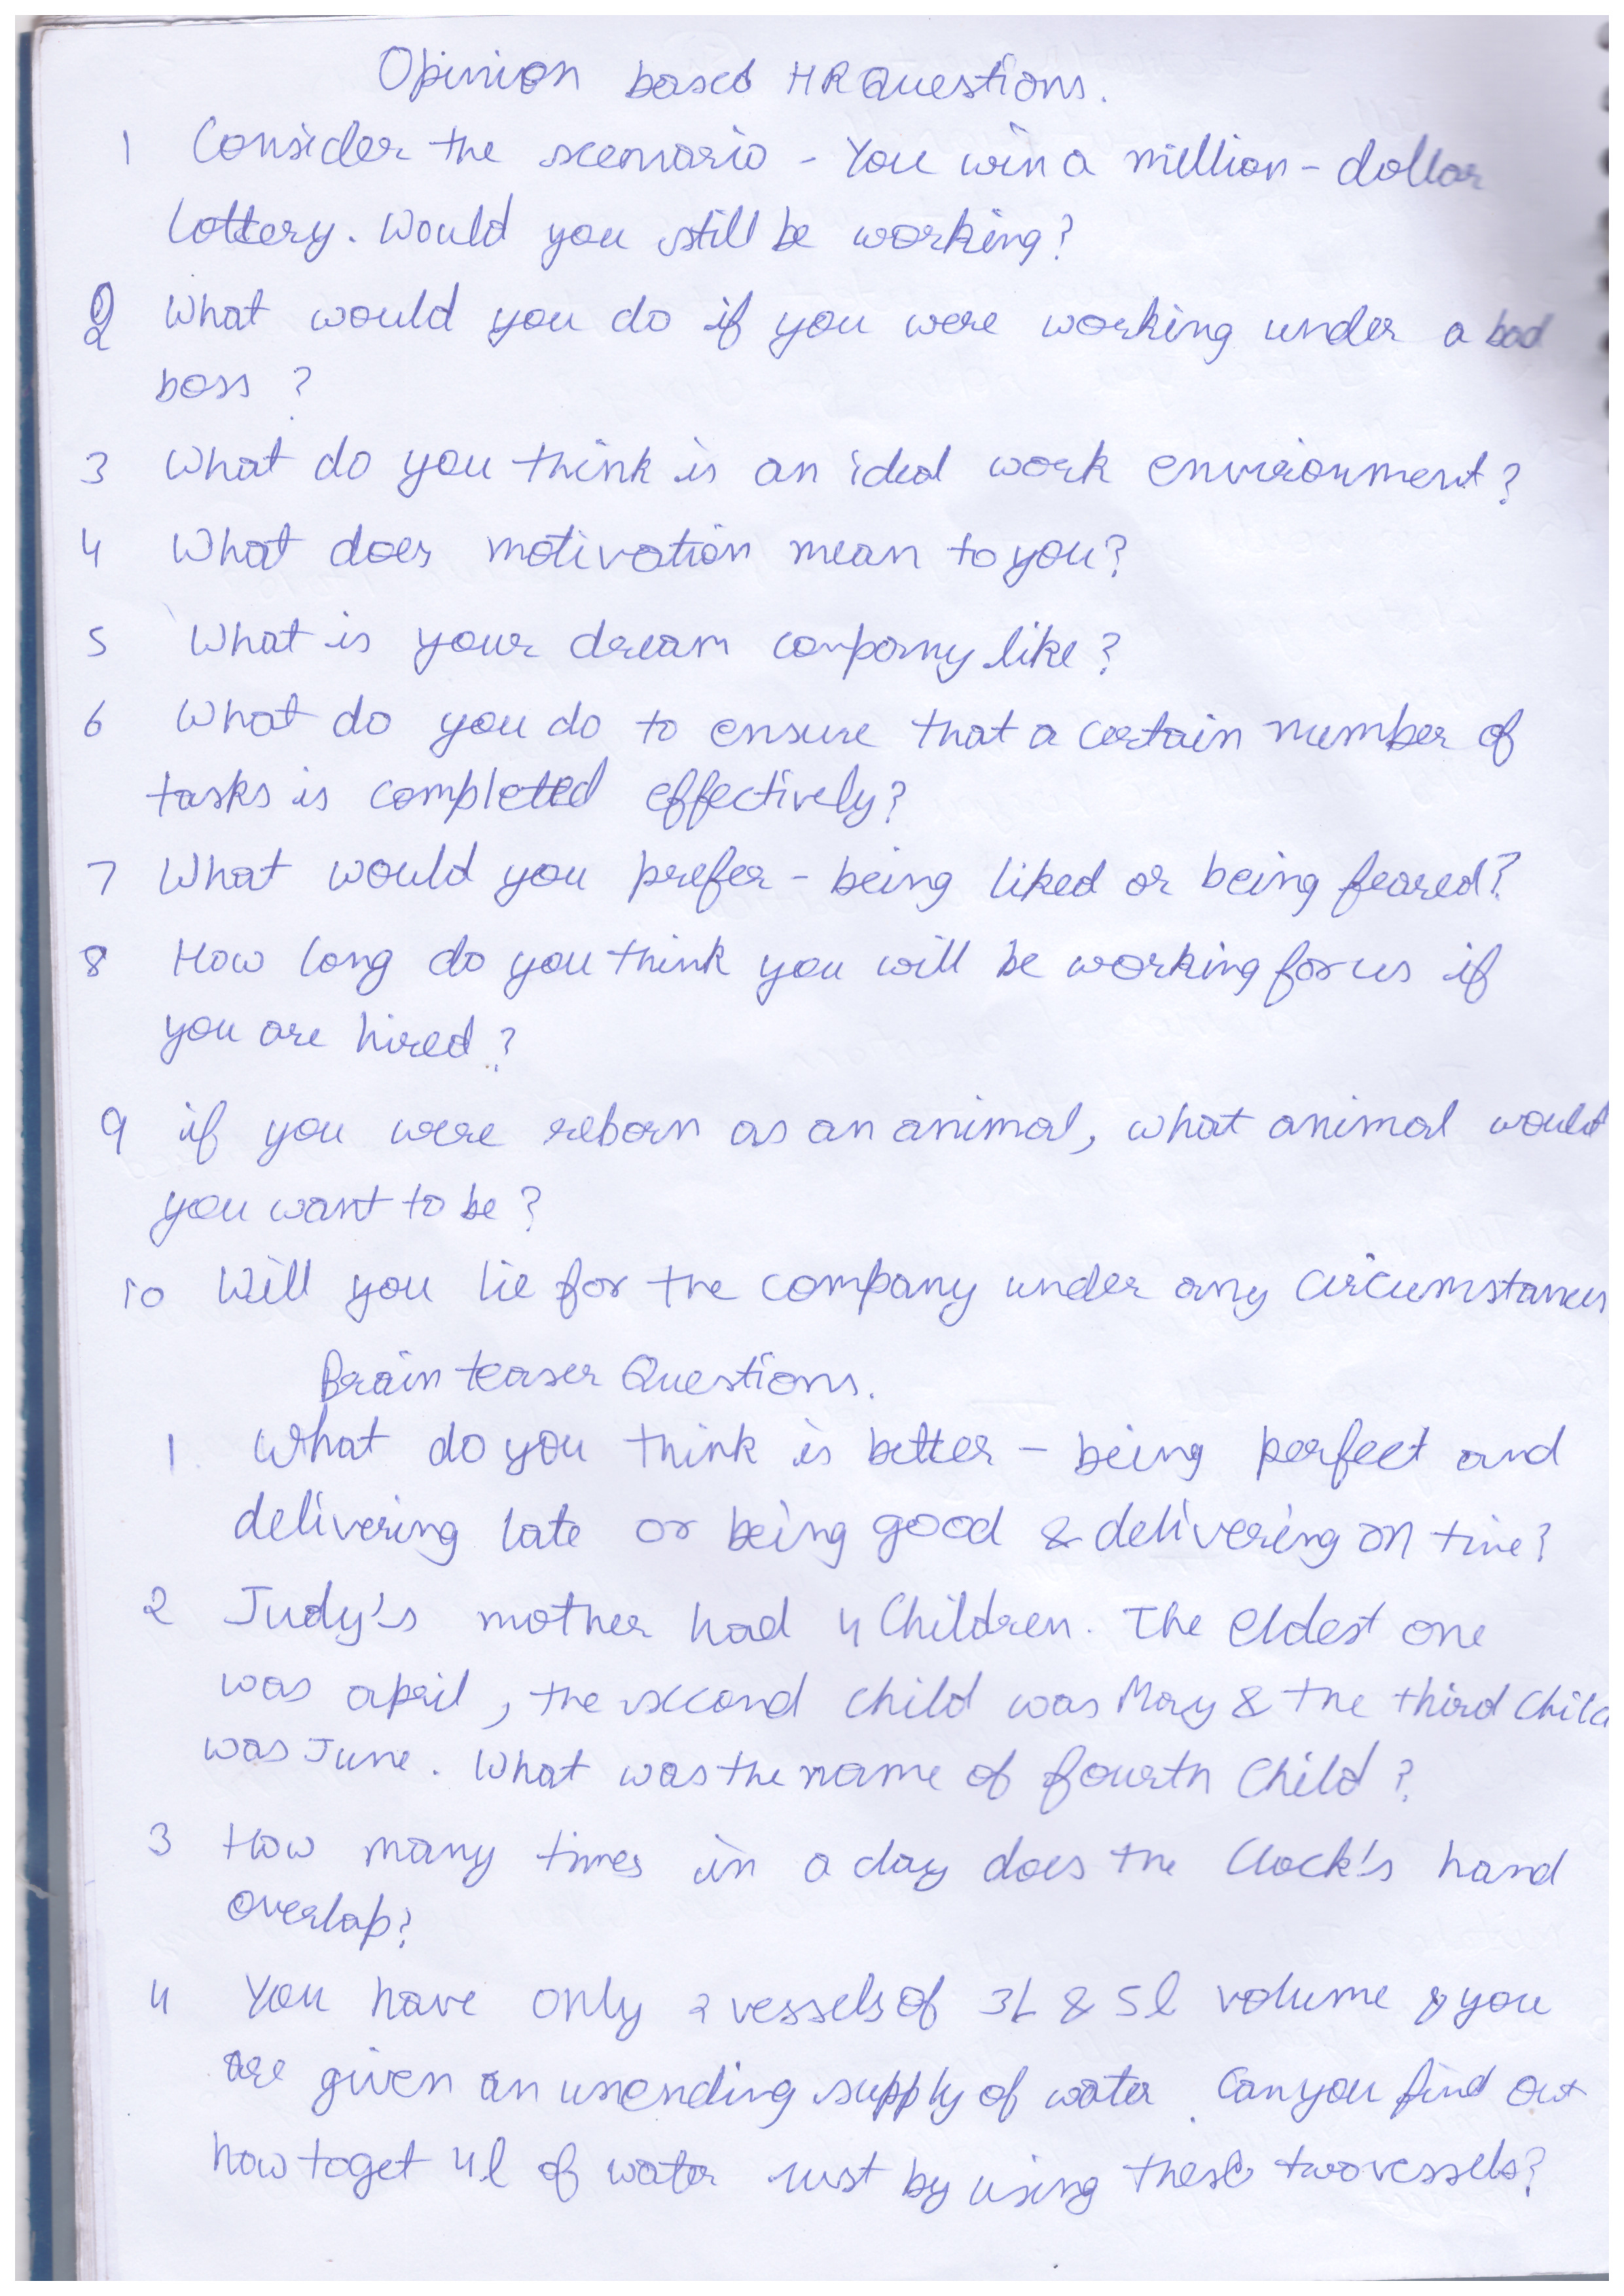 Opinion based HR Questions.
1 Consider the scenario - You win a million-dollar
lottery. Would you still be working?
2 What would you do if you were working under a bad
boss ?
3 What do you think is an ideal work environment?
4 What does motivation mean to you?
5 What is your dream company like ?
6 What do you do to ensure that a certain number of
tasks is completed effectively?
7 What would you prefer - being liked or being feared?
8 How long do you think you will be working for us if
you are hired ?
9 if you were reborn as an animal, what animal would
you want to be ?
10 Will you lie for the company under any circumstances
Brain teaser Questions.
1. What do you think is better - being perfect and
delivering late or being good & delivering on time?
2 Judy's mother had 4 Children. The eldest one
was april, the second child was May & the third Child
was June. What was the name of fourth Child ?
3 How many times in a day does the Clock's hand
overlap?
4 You have only 2 vessels of 3L & 5l volume & you
are given an unending supply of water. Can you find out
how to get 4l of water just by using these two vessels?